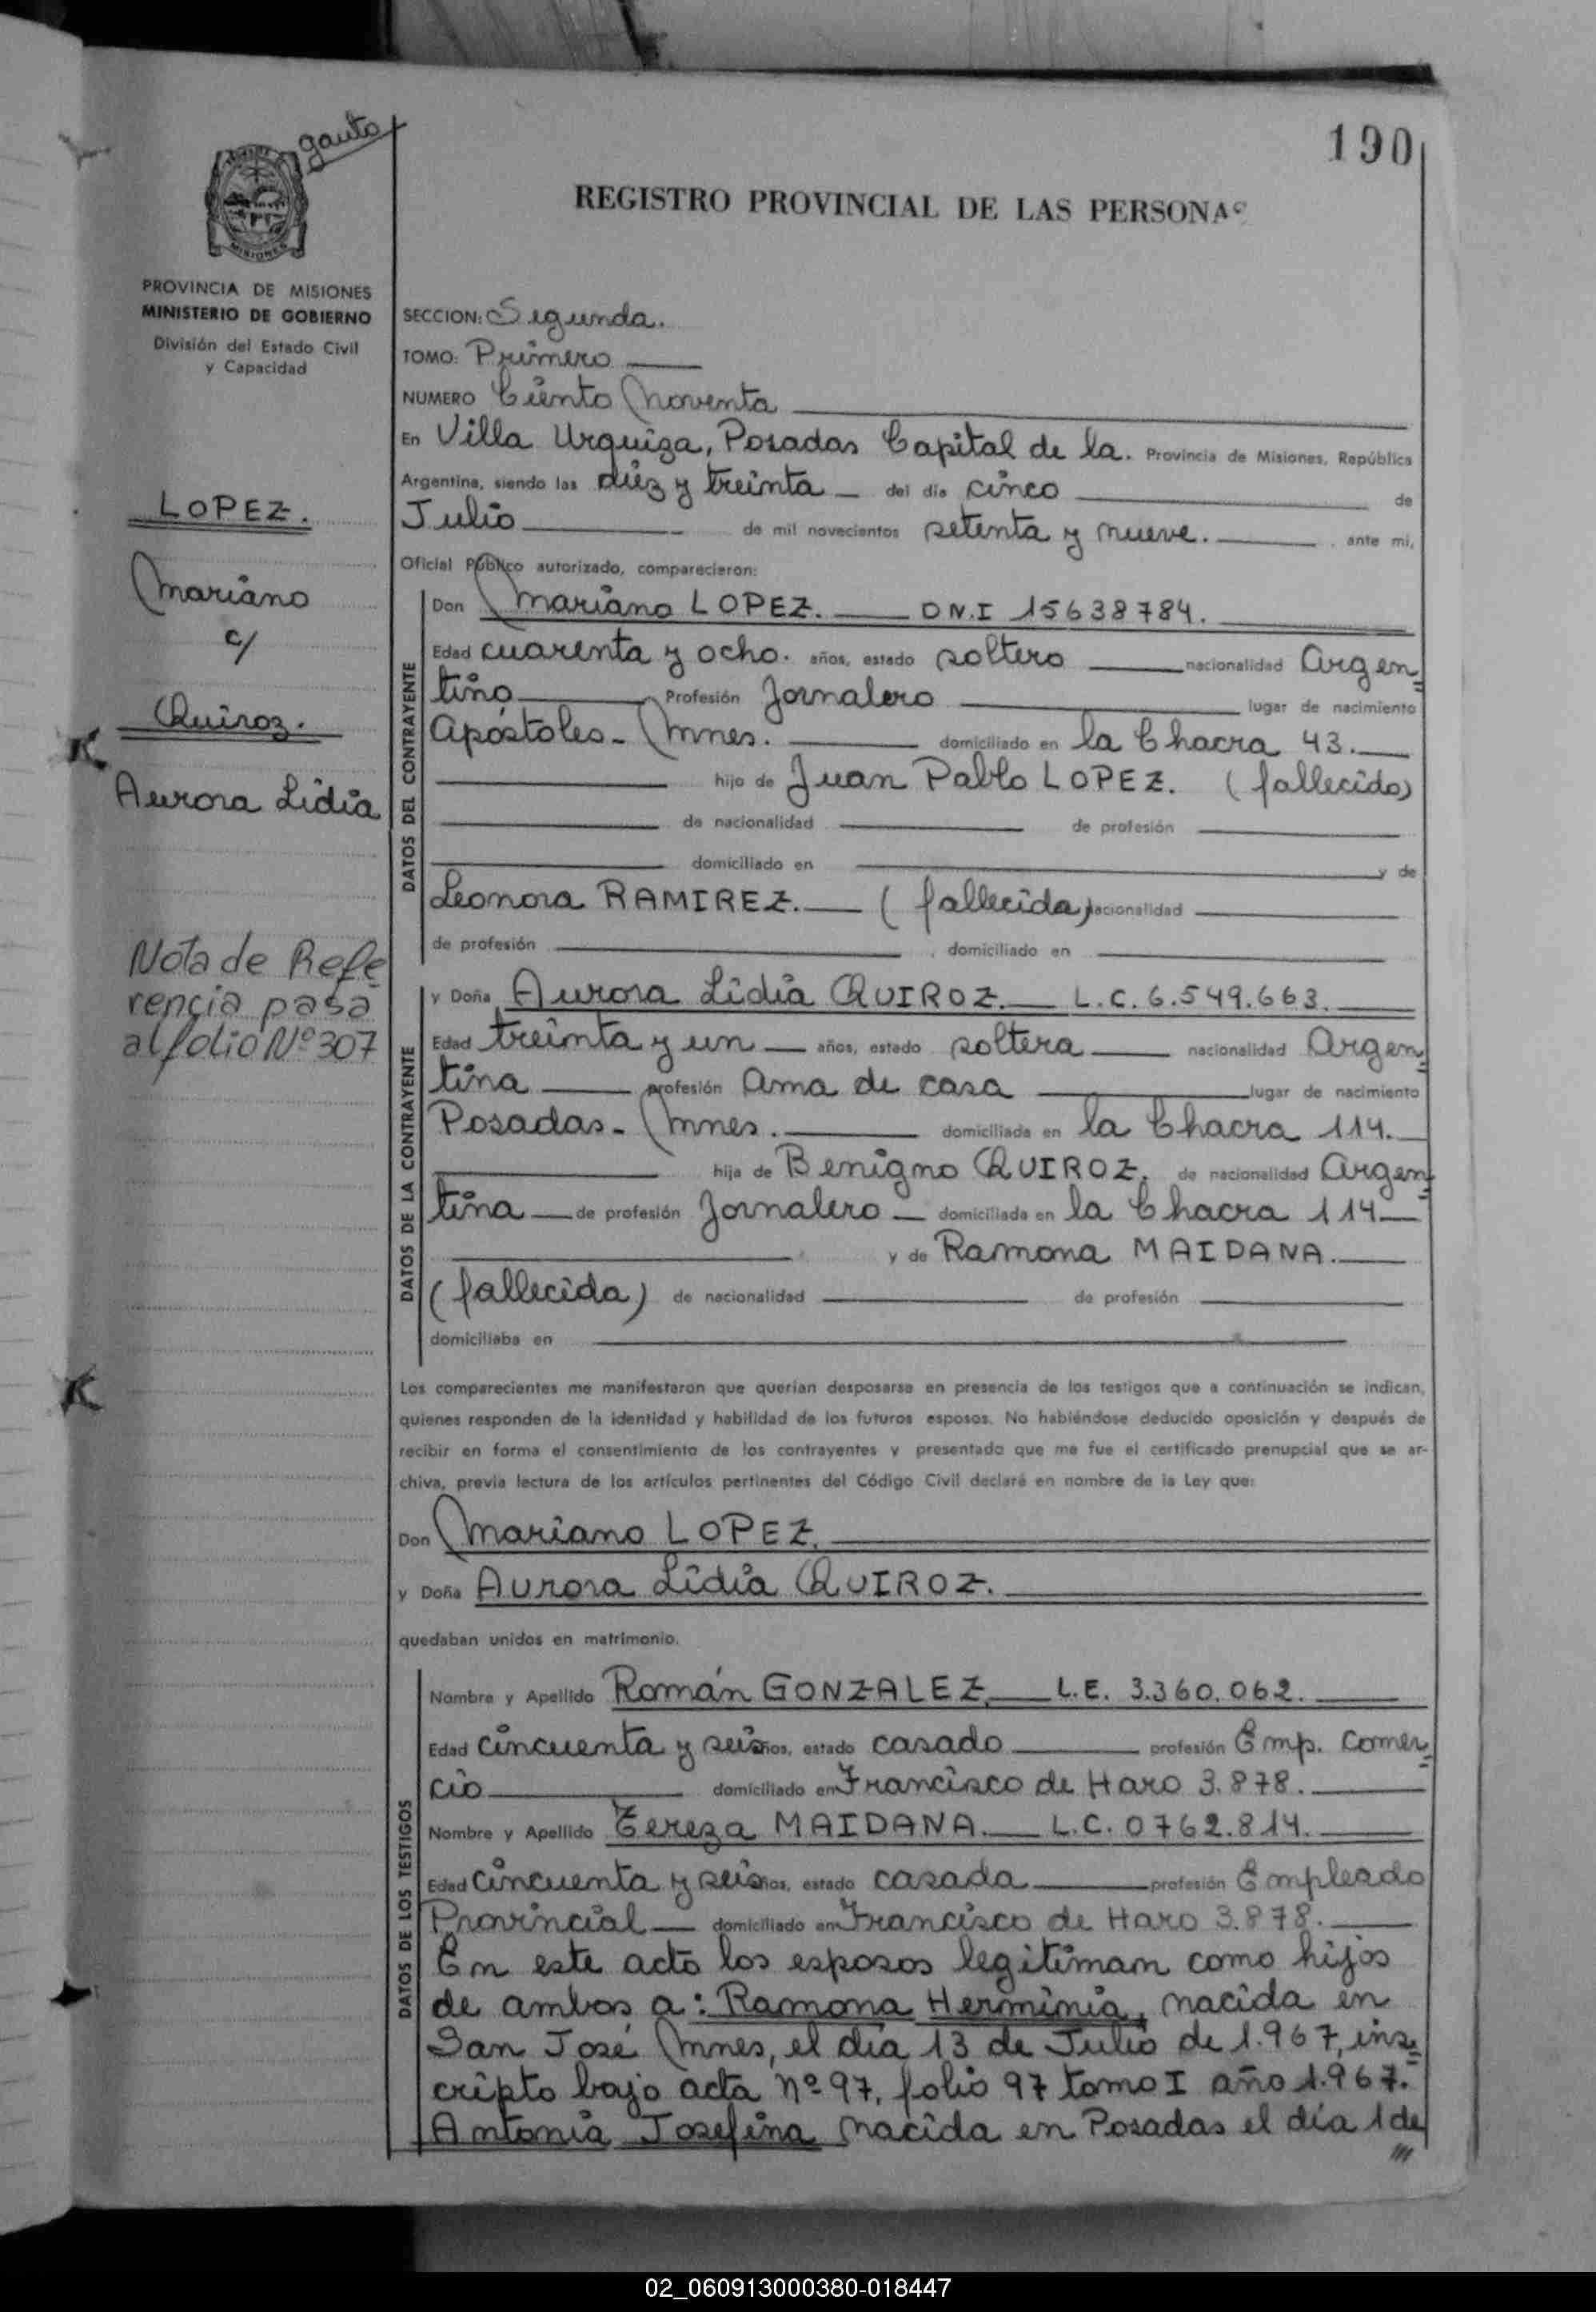 gauto
190
REGISTRO PROVINCIAL DE LAS PERSONAS
MISIONES
PROVINCIA DE MISIONES
MINISTERIO DE GOBIERNO
División del Estado Civil
y Capacidad
LOPEZ.
Mariano
c/
Quiroz.
Aurora Lidia
Nota de Refe
rencia pasa
al folio Nº 307
SECCION: Segunda.
TOMO: Primero
NUMERO Ciento Noventa
En Villa Urquiza, Posadas Capital de la. Provincia de Misiones, República
Argentina, siendo las diez y treinta del día cinco de
Julio de mil novecientos setenta y nueve. ante mi,
Oficial Público autorizado, comparecieron:
DATOS DEL CONTRAYENTE
Don Mariano LOPEZ. D.N.I 15638784.
Edad cuarenta y ocho. años, estado soltero nacionalidad Argen=
tino Profesión Jornalero lugar de nacimiento
Apóstoles- Mnes. domiciliado en la Chacra 43.
hijo de Juan Pablo LOPEZ. (fallecido)
de nacionalidad de profesión
domiciliado en y de
Leonora RAMIREZ. (fallecida) nacionalidad
de profesión domiciliado en
DATOS DE LA CONTRAYENTE
y Doña Aurora Lidia QUIROZ. L.C. 6.549.663.
Edad treinta y un años, estado soltera nacionalidad Argen=
tina profesión Ama de casa lugar de nacimiento
Posadas- Mnes. domiciliada en la Chacra 114.
hija de Benigno QUIROZ. de nacionalidad Argen=
tina de profesión Jornalero domiciliada en la Chacra 114
y de Ramona MAIDANA.
(fallecida) de nacionalidad de profesión
domiciliaba en
Los comparecientes me manifestaron que querían desposarse en presencia de los testigos que a continuación se indican,
quienes responden de la identidad y habilidad de los futuros esposos. No habiéndose deducido oposición y después de
recibir en forma el consentimiento de los contrayentes y presentado que me fue el certificado prenupcial que se ar-
chiva, previa lectura de los artículos pertinentes del Código Civil declaré en nombre de la Ley que:
Don Mariano LOPEZ.
y Doña Aurora Lidia QUIROZ.
quedaban unidos en matrimonio.
DATOS DE LOS TESTIGOS
Nombre y Apellido Román GONZALEZ. L.E. 3.360.062.
Edad cincuenta y seis años, estado casado profesión Emp. Comer=
cio domiciliado en Francisco de Haro 3.878.
Nombre y Apellido Tereza MAIDANA. L.C. 0762.814.
Edad cincuenta y seis años, estado casada profesión Empleado
Provincial domiciliado en Francisco de Haro 3.878.
En este acto los esposos legitiman como hijos
de ambos a: Ramona Herminia, nacida en
San José Mnes, el día 13 de Julio de 1.967, ins=
cripto bajo acta nº 97, folio 97 tomo I año 1.967.
Antonia Josefina nacida en Posadas el día 1 de
///
02_060913000380-018447